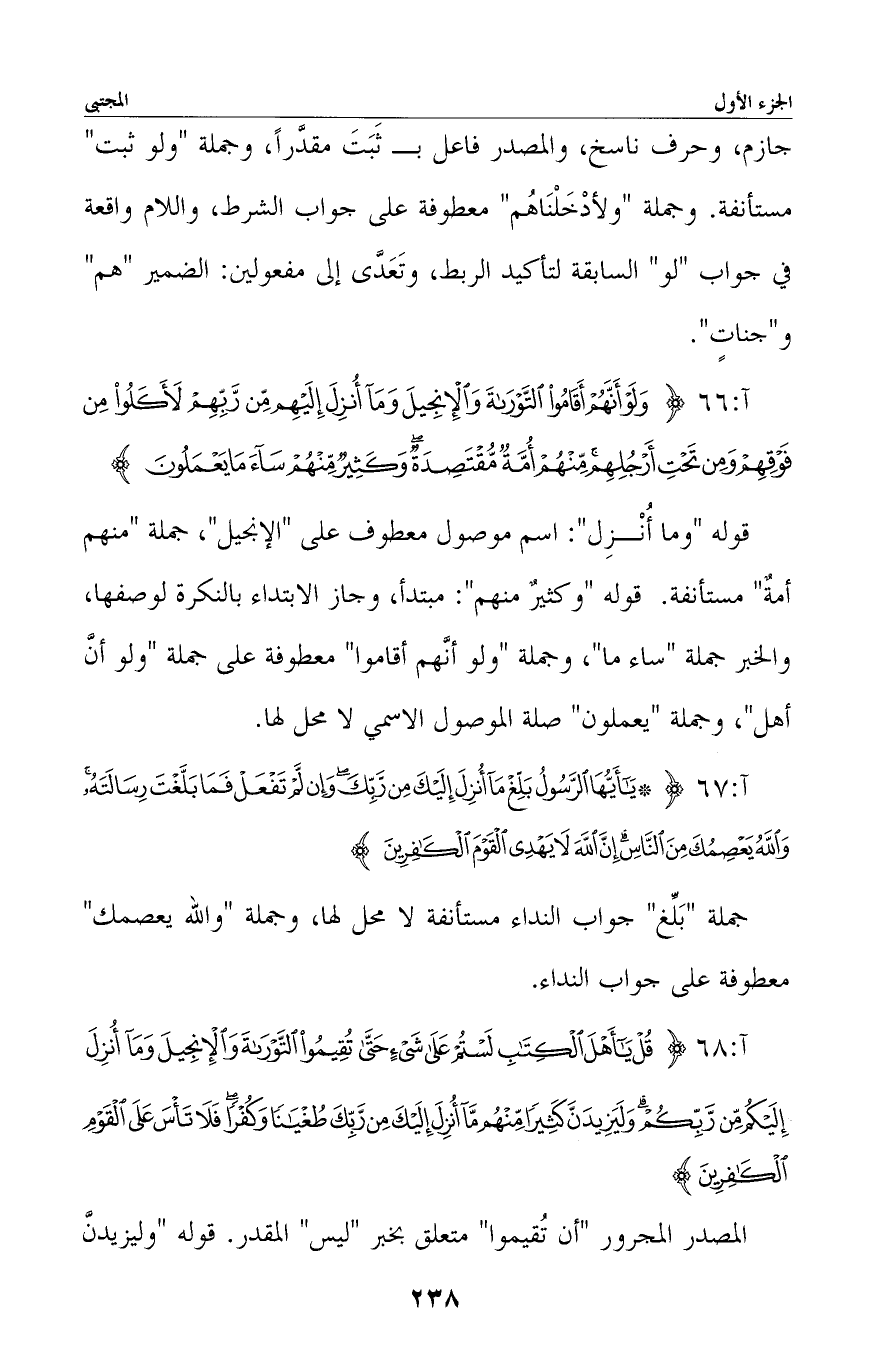 الجزء الأول المجتبى
جازم، وحرف ناسخ، والمصدر فاعل بـــ ثَبَتَ مقدَّراً، وجملة "ولو ثبت"
مستأنفة. وجملة "ولأدْخَلْنَاهُم" معطوفة على جواب الشرط، واللام واقعة
في جواب "لو" السابقة لتأكيد الربط، وتَعَدَّى إلى مفعولين: الضمير "هم"
و"جناتٍ".
آ:٦٦ ﴿ وَلَوْ أَنَّهُمْ أَقَامُوا۟ ٱلتَّوْرَىٰةَ وَٱلْإِنجِيلَ وَمَآ أُنزِلَ إِلَيْهِم مِّن رَّبِّهِمْ لَأَكَلُوا۟ مِن
فَوْقِهِمْ وَمِن تَحْتِ أَرْجُلِهِم ۚ مِّنْهُمْ أُمَّةٌ مُّقْتَصِدَةٌ ۖ وَكَثِيرٌ مِّنْهُمْ سَآءَ مَا يَعْمَلُونَ ﴾
قوله "وما أُنْـــزِل": اسم موصول معطوف على "الإنجيل"، جملة "منهم
أمةٌ" مستأنفة. قوله "وكثيرٌ منهم": مبتدأ، وجاز الابتداء بالنكرة لوصفها،
والخبر جملة "ساء ما"، وجملة "ولو أنَّهم أقاموا" معطوفة على جملة "ولو أنَّ
أهل"، وجملة "يعملون" صلة الموصول الاسمي لا محل لها.
آ:٦٧ ﴿ ۞ يَـٰٓأَيُّهَا ٱلرَّسُولُ بَلِّغْ مَآ أُنزِلَ إِلَيْكَ مِن رَّبِّكَ ۖ وَإِن لَّمْ تَفْعَلْ فَمَا بَلَّغْتَ رِسَالَتَهُۥ ۚ
وَٱللَّهُ يَعْصِمُكَ مِنَ ٱلنَّاسِ ۗ إِنَّ ٱللَّهَ لَا يَهْدِى ٱلْقَوْمَ ٱلْكَـٰفِرِينَ ﴾
جملة "بَلِّغ" جواب النداء مستأنفة لا محل لها، وجملة "والله يعصمك"
معطوفة على جواب النداء.
آ:٦٨ ﴿ قُلْ يَـٰٓأَهْلَ ٱلْكِتَـٰبِ لَسْتُمْ عَلَىٰ شَىْءٍ حَتَّىٰ تُقِيمُوا۟ ٱلتَّوْرَىٰةَ وَٱلْإِنجِيلَ وَمَآ أُنزِلَ
إِلَيْكُم مِّن رَّبِّكُمْ ۗ وَلَيَزِيدَنَّ كَثِيرًا مِّنْهُم مَّآ أُنزِلَ إِلَيْكَ مِن رَّبِّكَ طُغْيَـٰنًا وَكُفْرًا ۖ فَلَا تَأْسَ عَلَى ٱلْقَوْمِ
ٱلْكَـٰفِرِينَ ﴾
المصدر المجرور "أن تُقيموا" متعلق بخبر "ليس" المقدر. قوله "وليزيدنَّ
٢٣٨